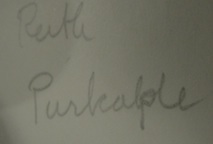 Ruth
Purkalple